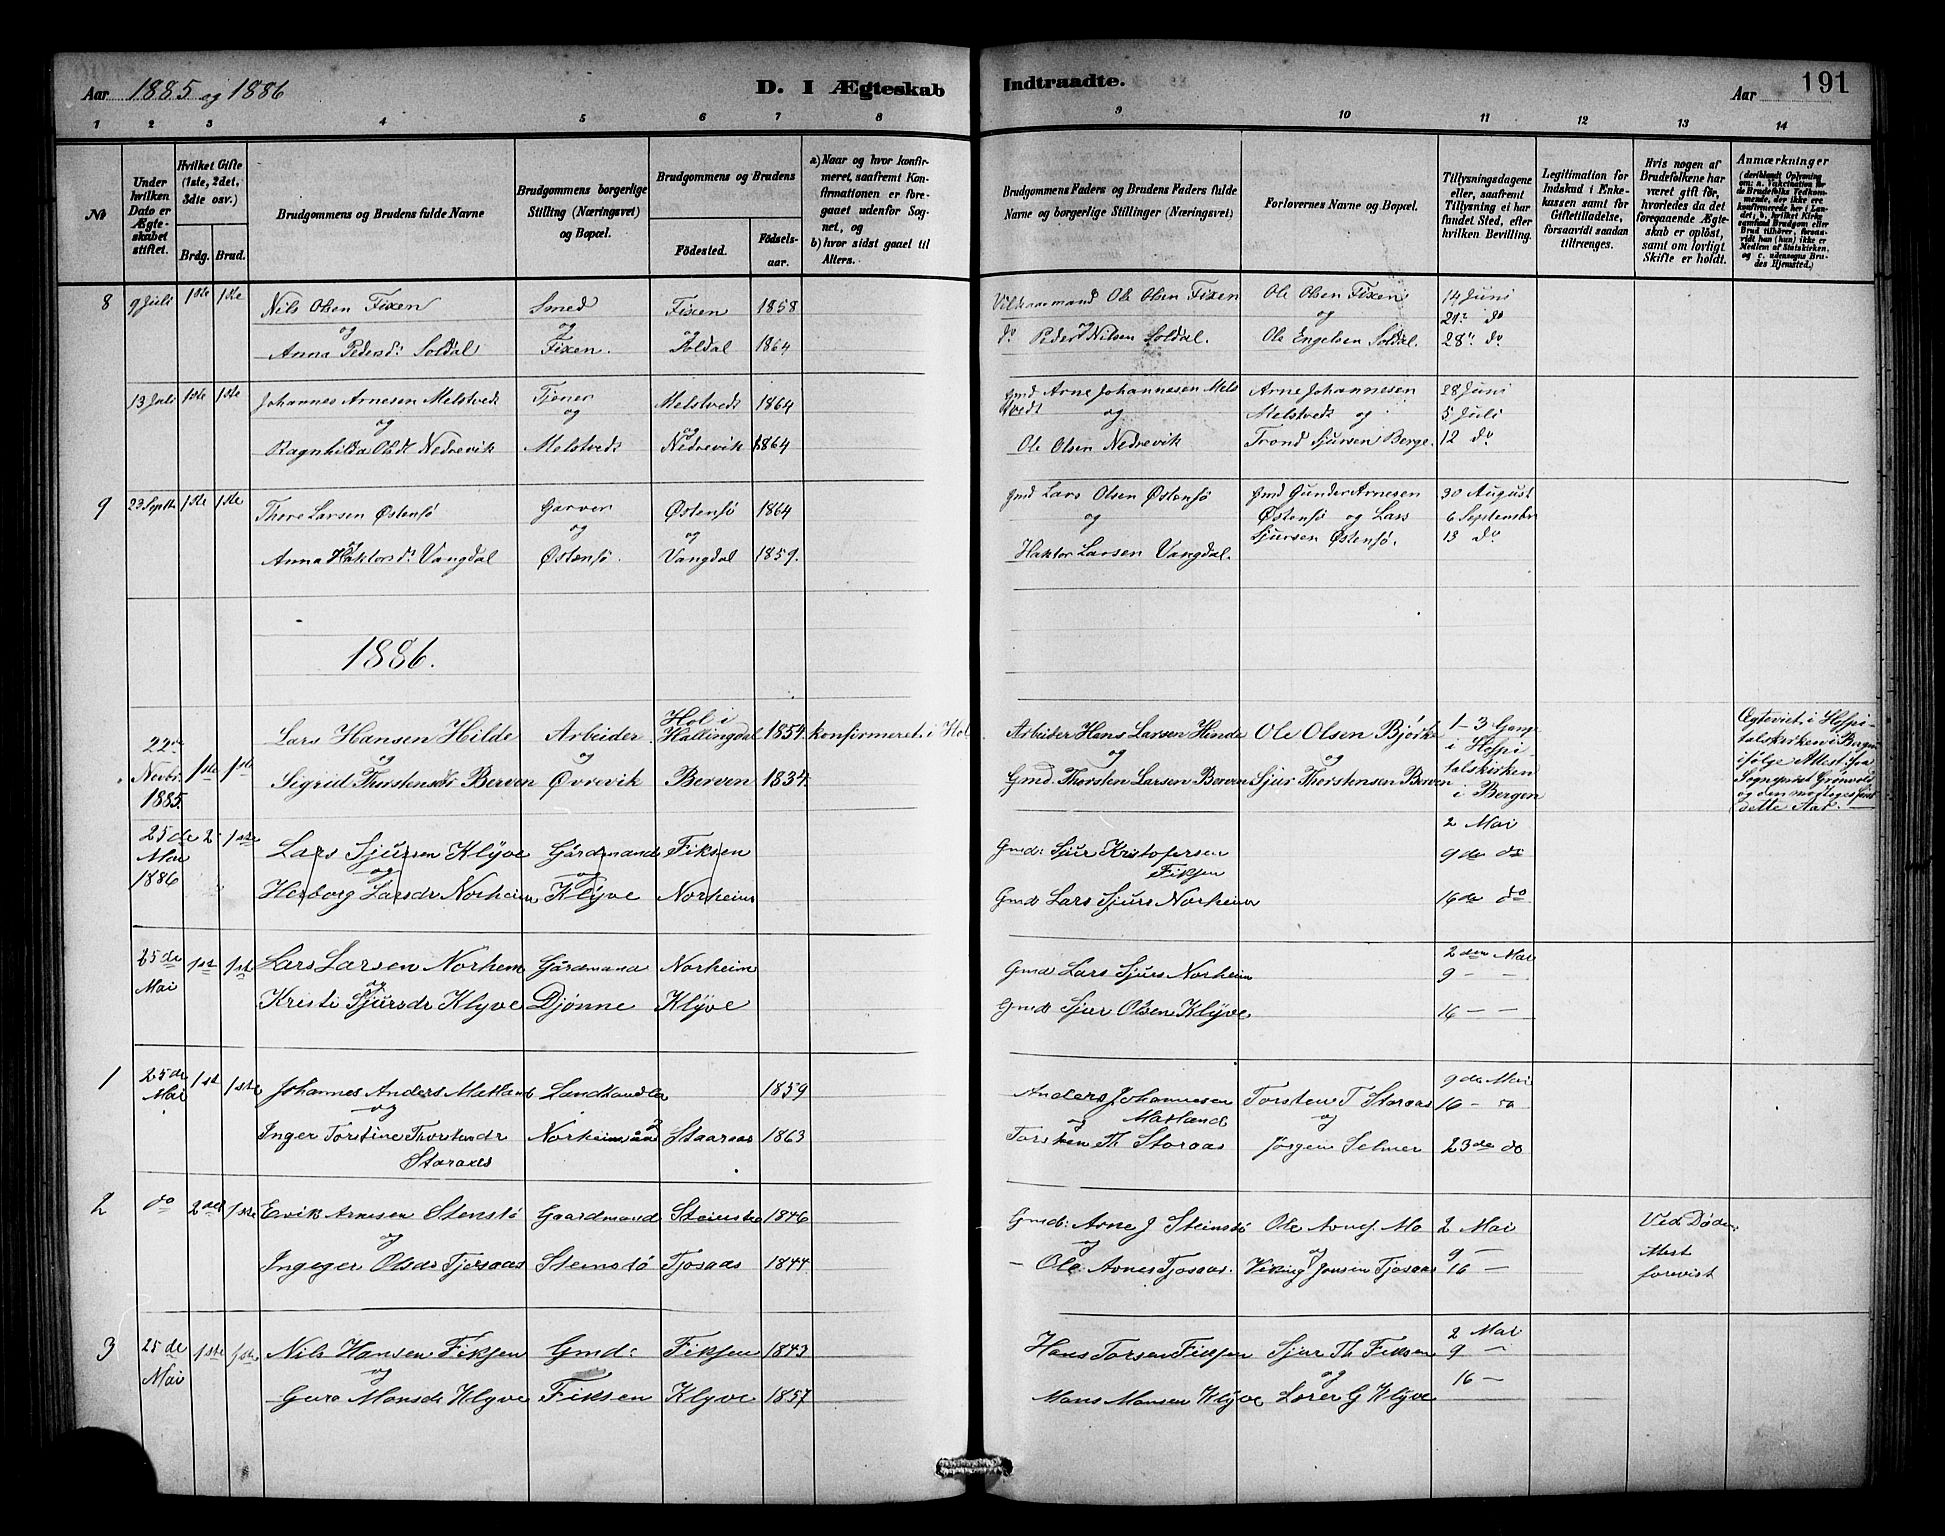 Aar 1885 og 1886
D. I Ægteskab
Indtraadte.
Aar
191
1 2 3 4 5 6 7 8 9 10 11 12 13 14
No
Under hvilken Dato er Ægteskabet stiftet.
Hvilket Gifte (1ste, 2det, 3die osv.)
Brdg. Brud.
Brudgommens og Brudens fulde Navne
Brudgommens borgerlige Stilling (Næringsvei) og Bopæl.
Brudgommens og Brudens
Fødested.
Fødselsaar.
a) Naar og hvor konfirmeret, saafremt Konfirmationen er foregaaet udenfor Sognet, og
b) hvor sidst gaaet til Alters.
Brudgommens Faders og Brudens Faders fulde Navne og borgerlige Stillinger (Næringsvei)
Forlovernes Navne og Bopæl.
Tillysningsdagene eller, saafremt Tillysning ei har fundet Sted, efter hvilken Bevilling.
Legitimation for Indskud i Enkekassen samt for Giftetilladelse, forsaavidt saadan tiltrænges.
Hvis nogen af Brudefolkene har været gift før, hvorledes da det foregaaende Ægteskab er opløst, samt om lovligt Skifte er holdt.
Anmærkninger
8 9 Juli 1ste 1ste Nils Olsen Fixen Smed Fixen 1858 Vilkaarmand Ole Olsen Fixen Ole Olsen Fixen 14 Juni
og og og og og 21 do
Anna Pedersd: Soldal Fixen. Soldal 1864 do Peder Nilsen Soldal. Ole Engelsen Soldal. 28 do
13 Juli 1ste 1ste Johannes Arnesen Melstvedt Tjener Melstvedt 1864 Gmd Arne Johannesen Melstvedt Arne Johannesen 28 Juni
og og og og Melstvedt og 5 Juli
Ragnhilda Olsdt Nedrevik Melstvedt Nedrevik 1864 Ole Olsen Nedrevik Trond Sjursen Berge. 12 do
9 23 Septbr 1ste 1ste There Larsen Østensø Garver Østensø 1864 Gmd Lars Olsen Østensø Gmd Gunder Arnesen 30 August
og og og og Østensø og Lars 6 September
Anna Haktorsd: Vangdal Østensø. Vangdal 1859. Haktor Larsen Vangdal. Sjursen Østensø. 13 do
1886.
22de Novbr. 1885. 1ste 1ste Lars Hansen Hilde Arbeider Hol i Hallingdal 1854 konfirmeret i Hol Arbeider Hans Larsen Ole Olsen Bjørke 1-3 Gang i Hospitalskirken i Bergen
og og og
Sigrid Thorstensdr Berven Øvrevik Berven 1834. Gmd. Thorsten Larsen Berven Sjur Thorstensen Berven
Ægteviet i Hospitalskirken i Bergen ifølge Attest fra Sogneprest Grønvold og den modtoges først dette Aar.
25de Mai 1886 2 1ste Lars Sjursen Klyve Gårdmand Fiksen Gmd: Sjur Kristofersen Fiksen 2 Mai
og og 9de do
Herborg Larsdr Norheim Klyve Norheim Gmd Lars Sjurs Norheim 16de do
25de Mai 1st 1st Lars Larsen Norhem Gårdmand Norheim Gmd Lars Sjurs Norheim 2den Mai
og 9 - -
Kristi Sjursdr Klyve Djønne Klyve Gmd Sjur Olsen Klyve 16 - -
1 25de Mai 1st 1ste Johannes Anders Matland Landhandler 1859 Anders Johannesen Matland Torsten T Storaas 9de Mai
og og og 16 - do
Inger Torstine Thorstendr Storaas Norheimsund Staaraas 1863 Torsten Th Storaas Jørgen Selmer 23de do
2 do 2det 1ste Eerik Arnesen Stenstø Gaardmand Steinstø 1846 Gmd: Arne J Steinstø Ole Arnes. Mo 2 Mai Ved Døden
og og og 9 - Attest
Ingeger Olsdr Tjosaas Steinstø Tjosaas 1844 - Ole Arnes Tjosaas. Viking Jonsen Tjosaas 16 - forevist
3 25de Mai 1ste 1ste Nils Hansen Fiksen Gmd: Fiksen 1843 Hans Torsen Fiksen Sjur Th. Fiksen 2 Mai
og og 9 -
Guro Mansdr Klyve Fiksen Klyve 1857 Mons Monsen Klyve G Klyve 16 -